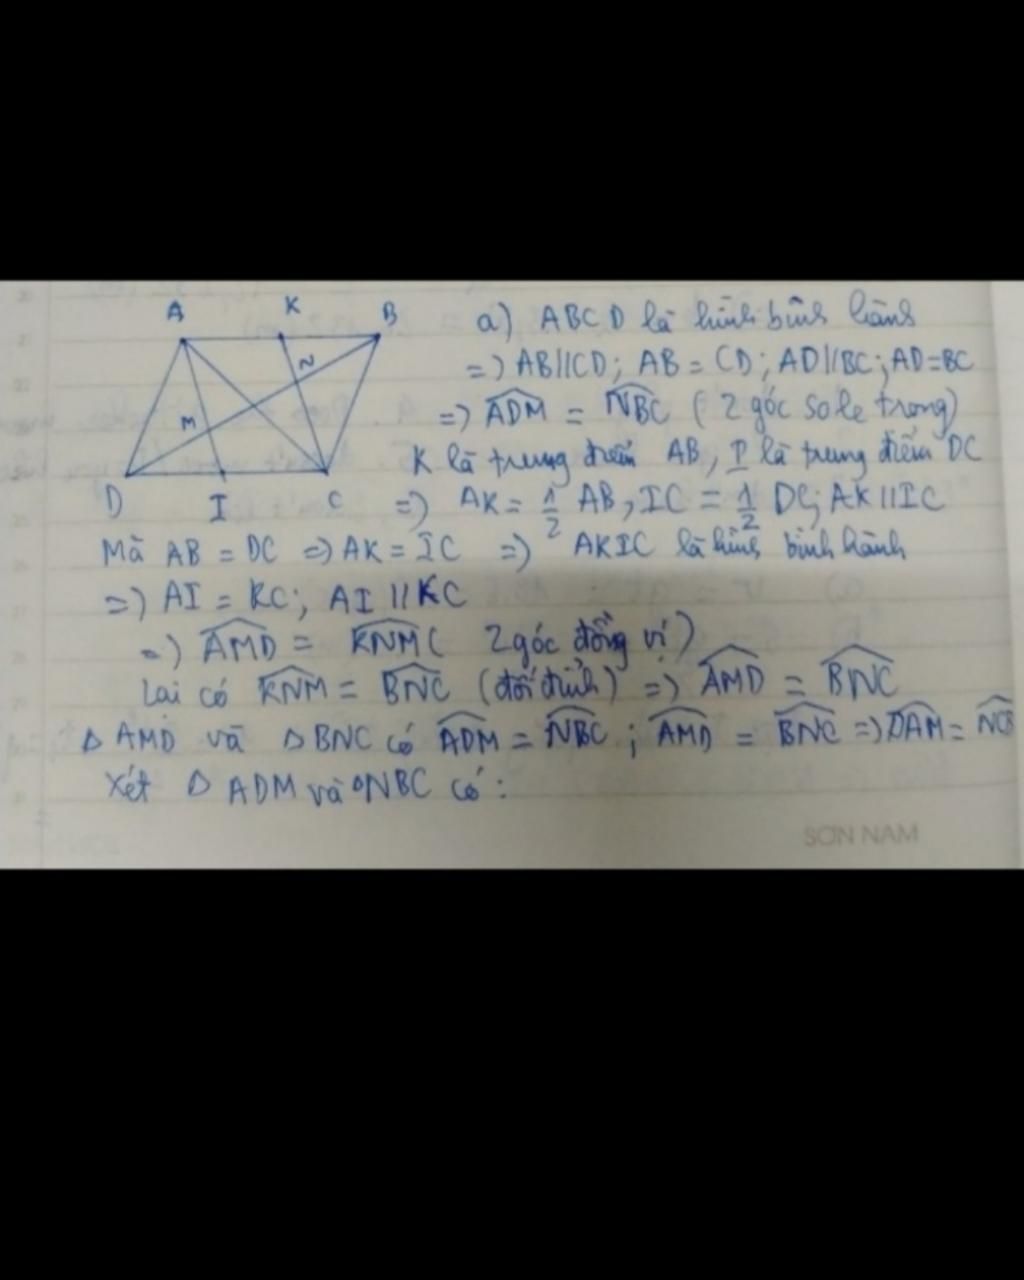 A K B
N
M
D I C
a) ABCD là hình bình hành
=) AB//CD; AB = CD; AD//BC; AD=BC
=) ADM = NBC ( 2 góc so le trong)
K là trung điểm AB, I là trung điểm DC
=) AK = 1/2 AB, IC = 1/2 DC; AK // IC
Mà AB = DC =) AK = IC =) AKIC là hình bình hành
=) AI = KC; AI // KC
=) AMD = KNM ( 2 góc đồng vị)
lại có KNM = BNC (đối đỉnh) =) AMD = BNC
Δ AMD và Δ BNC có ADM = NBC ; AMD = BNC =) DAM = NCB
Xét Δ ADM và ΔNBC có :
SON NAM